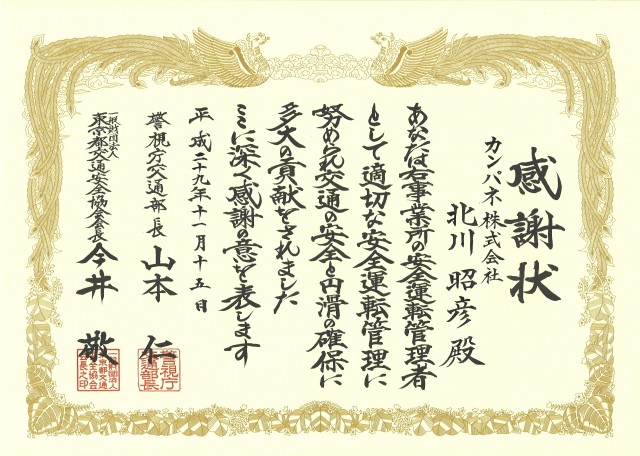 感謝状
カンパネ株式会社
北川昭彦殿
あなたは右事業所の安全運転管理者
として適切な安全運転管理に
努められ交通の安全と円滑の確保に
多大の貢献をされました
ここに深く感謝の意を表します
平成二十九年十一月十五日
警視庁交通部長 山本仁
警視庁交通部長
一般財団法人
東京都交通安全協会会長 今井敬
一般財団法人東京都交通安全協会会長之印